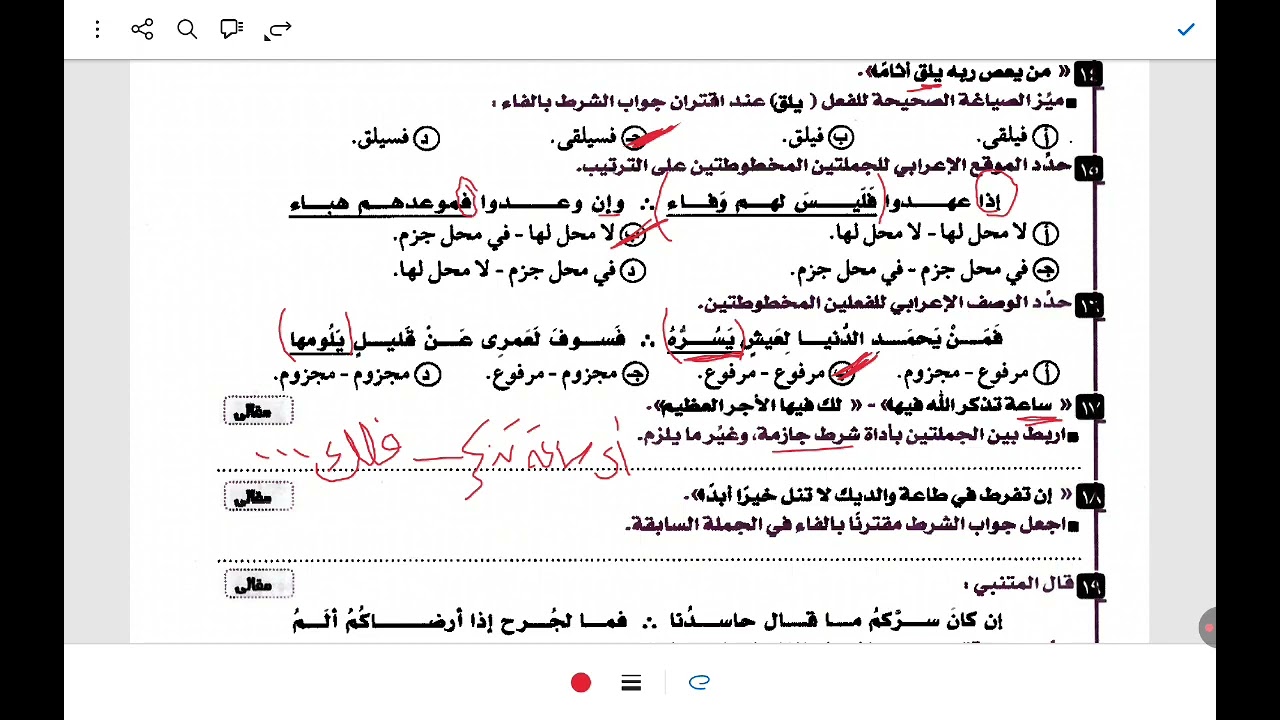 ١٤ « من يعص ربه يلق أثامًا».
■ ميّز الصياغة الصحيحة للفعل ( يلق) عند اقتران جواب الشرط بالفاء :
أ فيلقى. ب فيلق. جـ فسيلقى. د فسيلق.
١٥ حدِّد الموقع الإعرابي للجملتين المخطوطتين على الترتيب.
إذا عهدوا فَلَيسَ لهم وَفاء ∴ وإن وعدوا فموعدهم هباء
أ لا محل لها – لا محل لها. ب لا محل لها – في محل جزم.
جـ في محل جزم – في محل جزم. د في محل جزم – لا محل لها.
١٦ حدِّد الوصف الإعرابي للفعلين المخطوطتين.
فَمَنْ يَحمَدِ الدُّنيا لِعَيشٍ يَسُرُّهُ ∴ فَسوفَ لَعَمرِى عَنْ قَليلٍ يَلُومها
أ مرفوع – مجزوم. ب مرفوع – مرفوع. جـ مجزوم – مرفوع. د مجزوم – مجزوم.
١٧ « ساعة تذكر الله فيها» – « لك فيها الأجر العظيم». مقالى
■ اربط بين الجملتين بأداة شرط جازمة، وغيِّر ما يلزم.
أى ساعة تذكر فلك ...
١٨ « إن تفرط في طاعة والديك لا تنل خيرًا أبدًا». مقالى
■ اجعل جواب الشرط مقترنًا بالفاء في الجملة السابقة.
١٩ قال المتنبي : مقالى
إن كانَ سرَّكمُ ما قال حاسدُنا ∴ فما لجُرح إذا أرضاكُمُ ألَمُ